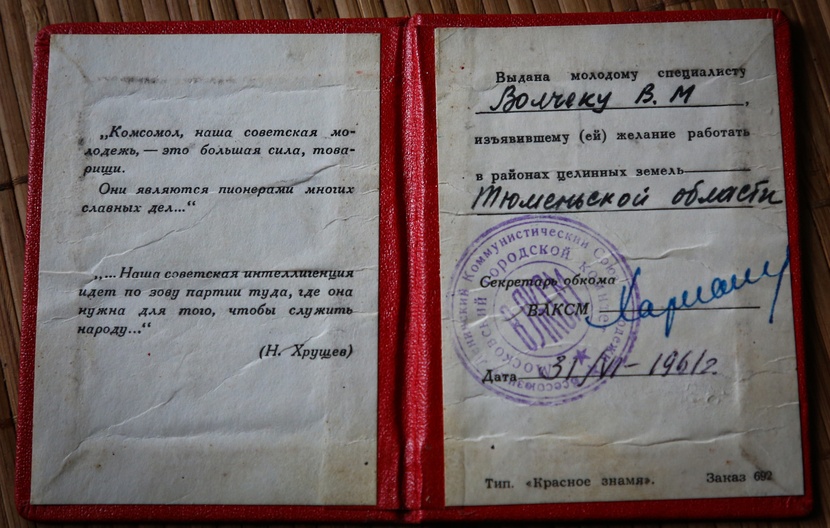 „Комсомол, наша советская мо-
лодежь, — это большая сила, това-
рищи.
Они являются пионерами многих
славных дел...“
„...Наша советская интеллигенция
идет по зову партии туда, где она
нужна для того, чтобы служить
народу...“
(Н. Хрущев)
Выдана молодому специалисту
Волчеку В. М,
изъявившему (ей) желание работать
в районах целинных земель
Тюменьской области
Секретарь обкома
ВЛКСМ
Дата 31/VI-1961г.
Коммунистический Союз
Московский городской комитет
ВЛКСМ
Тип. «Красное знамя». Заказ 692